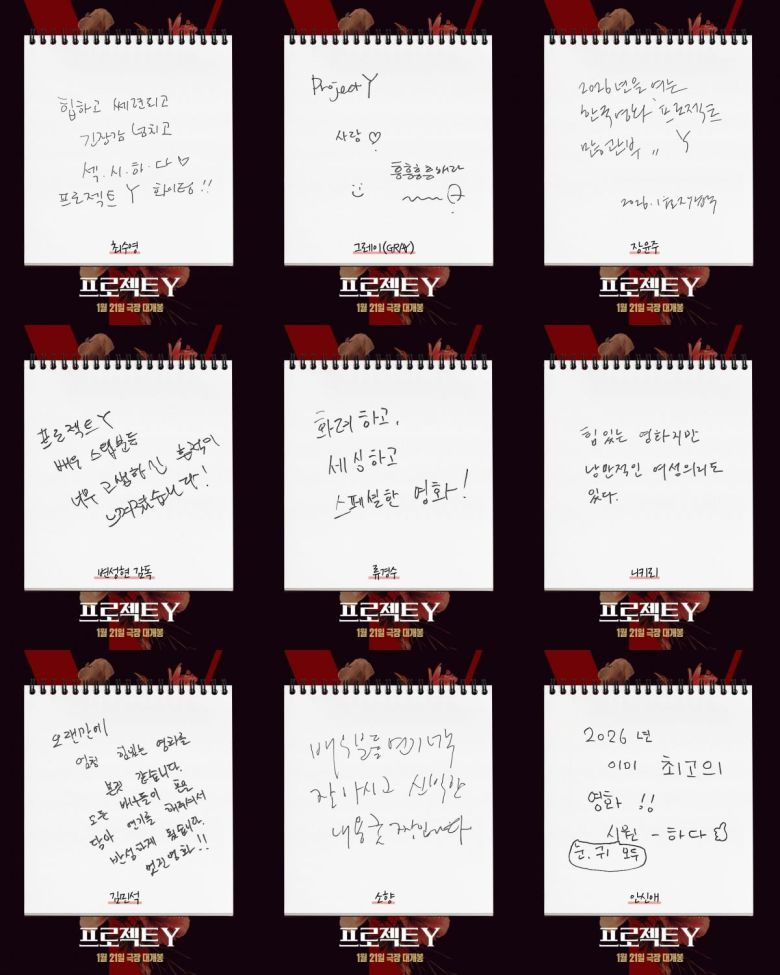 힙하고 쎄련되고
긴장감 넘치고
섹.시.하.다♡
프로젝트 Y 화이팅!!
최수영
프로젝트 Y
1월 21일 극장 대개봉
Project Y
사랑♡
흥흥흥해라
그레이(GRAY)
프로젝트 Y
1월 21일 극장 대개봉
2026년을 여는
한국영화 프로젝트
Y
2026.1
장윤주
프로젝트 Y
1월 21일 극장 대개봉
프로젝트 Y
배우 스탭분들
너무 고생하신 흔적이
느껴졌습니다!
변성현 감독
프로젝트 Y
1월 21일 극장 대개봉
화려하고,
세심하고
스페셜한 영화!
류경수
프로젝트 Y
1월 21일 극장 대개봉
힘있는 영화지만
낭만적인 여성의리도
있다.
나키리
프로젝트 Y
1월 21일 극장 대개봉
오랜만에
엄청 힘있는 영화를
본것 같습니다.
모든 배우들이 혼을
담아 연기를 해주셔서
반성교재 됬습니다.
멋진영화!!
김민석
프로젝트 Y
1월 21일 극장 대개봉
배우분들 연기 너무
잘하시고 신박한
내용 굿 짱입니다
소향
프로젝트 Y
1월 21일 극장 대개봉
2026년
이미 최고의
영화!!
시원-하다
눈,귀 모두
안신애
프로젝트 Y
1월 21일 극장 대개봉